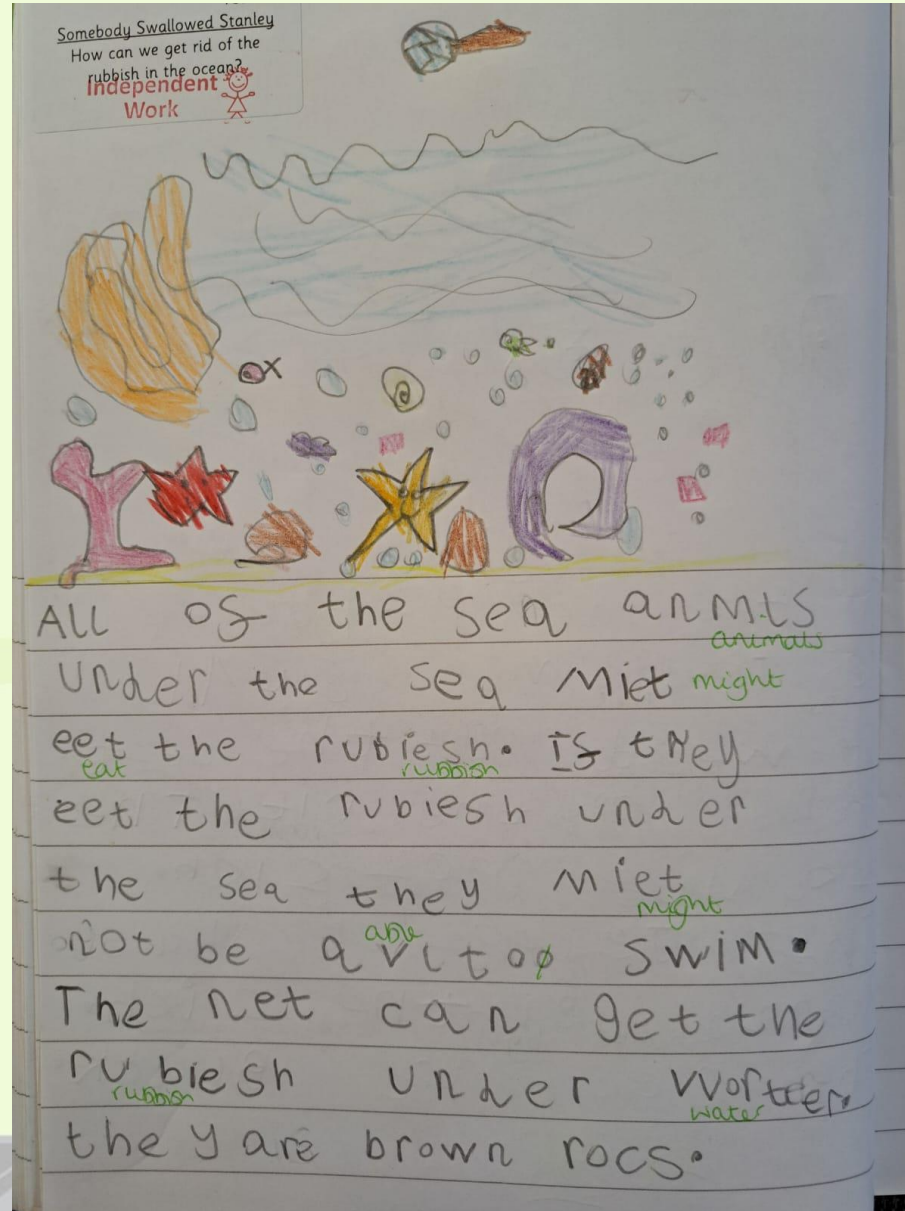 Somebody Swallowed Stanley
How can we get rid of the
rubbish in the ocean?
Independent
Work
All of the sea anmls
animals
under the sea miet might
eet the rubiesh. If they
eat rubbish
eet the rubiesh under
the sea they miet
might
able
not be avl to swim.
The net can get the
rubiesh under worteer.
rubbish water
they are brown rocs.